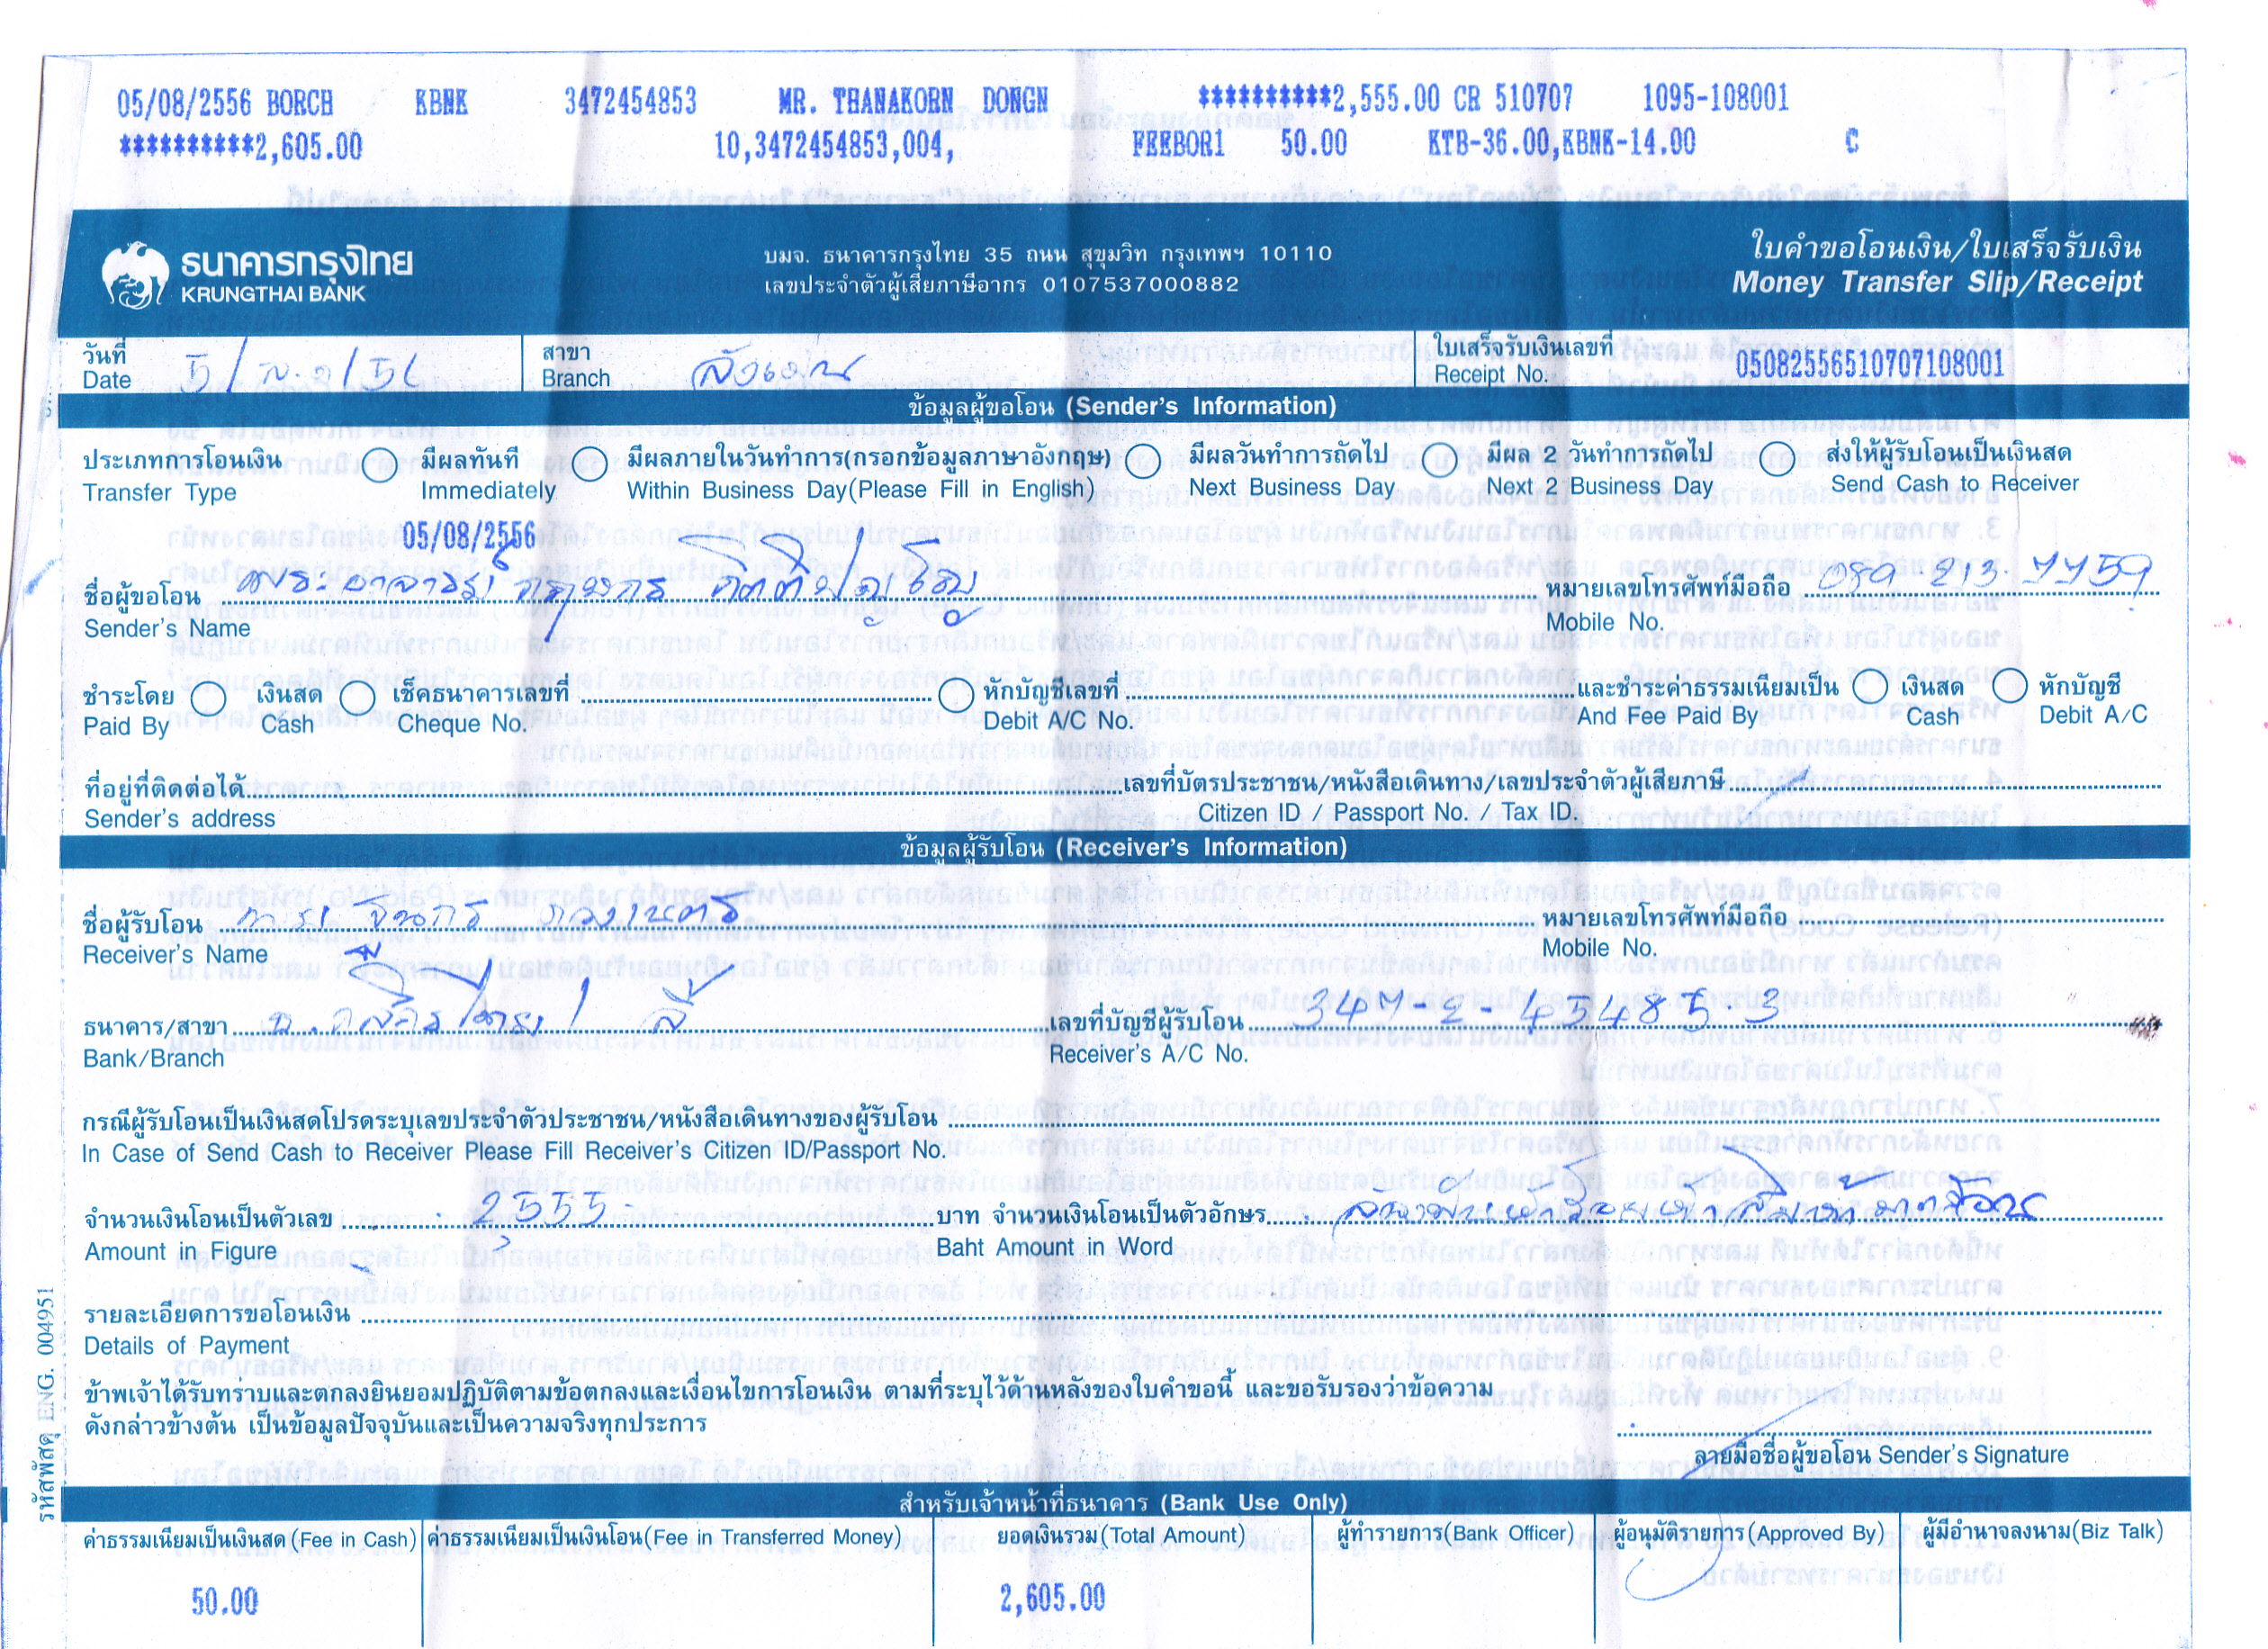 05/08/2556 BORCH KBNK 3472454853 MR. THANAKORN DONGN **********2,555.00 CR 510707 1095-108001
**********2,605.00 10,3472454853,004, FEEBOR1 50.00 KTB-36.00,KBNK-14.00 C
ธนาคารกรุงไทย
KRUNGTHAI BANK
บมจ. ธนาคารกรุงไทย 35 ถนน สุขุมวิท กรุงเทพฯ 10110
เลขประจำตัวผู้เสียภาษีอากร 0107537000882
ใบคำขอโอนเงิน/ใบเสร็จรับเงิน
Money Transfer Slip/Receipt
วันที่ 5/ส.ค/56 สาขา ใบเสร็จรับเงินเลขที่ 05082556510707108001
Date Branch Receipt No.
ข้อมูลผู้ขอโอน (Sender's Information)
ประเภทการโอนเงิน มีผลทันที มีผลภายในวันทำการ(กรอกข้อมูลภาษาอังกฤษ) มีผลวันทำการถัดไป มีผล 2 วันทำการถัดไป ส่งให้ผู้รับโอนเป็นเงินสด
Transfer Type Immediately Within Business Day(Please Fill in English) Next Business Day Next 2 Business Day Send Cash to Receiver
05/08/2556
ชื่อผู้ขอโอน พระอาจารย์ หมายเลขโทรศัพท์มือถือ 089-213-7759
Sender's Name Mobile No.
ชำระโดย เงินสด เช็คธนาคารเลขที่ หักบัญชีเลขที่ และชำระค่าธรรมเนียมเป็น เงินสด หักบัญชี
Paid By Cash Cheque No. Debit A/C No. And Fee Paid By Cash Debit A/C
ที่อยู่ที่ติดต่อได้ เลขที่บัตรประชาชน/หนังสือเดินทาง/เลขประจำตัวผู้เสียภาษี
Sender's address Citizen ID / Passport No. / Tax ID.
ข้อมูลผู้รับโอน (Receiver's Information)
ชื่อผู้รับโอน หมายเลขโทรศัพท์มือถือ
Receiver's Name Mobile No.
ธนาคาร/สาขา ธ.กสิกรไทย / ลี้ เลขที่บัญชีผู้รับโอน 347-2-45485-3
Bank/Branch Receiver's A/C No.
กรณีผู้รับโอนเป็นเงินสดโปรดระบุเลขประจำตัวประชาชน/หนังสือเดินทางของผู้รับโอน
In Case of Send Cash to Receiver Please Fill Receiver's Citizen ID/Passport No.
จำนวนเงินโอนเป็นตัวเลข 2555- บาท จำนวนเงินโอนเป็นตัวอักษร สองพันห้าร้อยห้าสิบห้าบาทถ้วน
Amount in Figure Baht Amount in Word
รายละเอียดการขอโอนเงิน
Details of Payment
ข้าพเจ้าได้รับทราบและตกลงยินยอมปฏิบัติตามข้อตกลงและเงื่อนไขการโอนเงิน ตามที่ระบุไว้ด้านหลังของใบคำขอนี้ และขอรับรองว่าข้อความ
ดังกล่าวข้างต้น เป็นข้อมูลปัจจุบันและเป็นความจริงทุกประการ
ลายมือชื่อผู้ขอโอน Sender's Signature
สำหรับเจ้าหน้าที่ธนาคาร (Bank Use Only)
ค่าธรรมเนียมเป็นเงินสด (Fee in Cash) ค่าธรรมเนียมเป็นเงินโอน(Fee in Transferred Money) ยอดเงินรวม(Total Amount) ผู้ทำรายการ(Bank Officer) ผู้อนุมัติรายการ(Approved By) ผู้มีอำนาจลงนาม(Biz Talk)
50.00 2,605.00
รหัสพัสดุ ENG. 004951